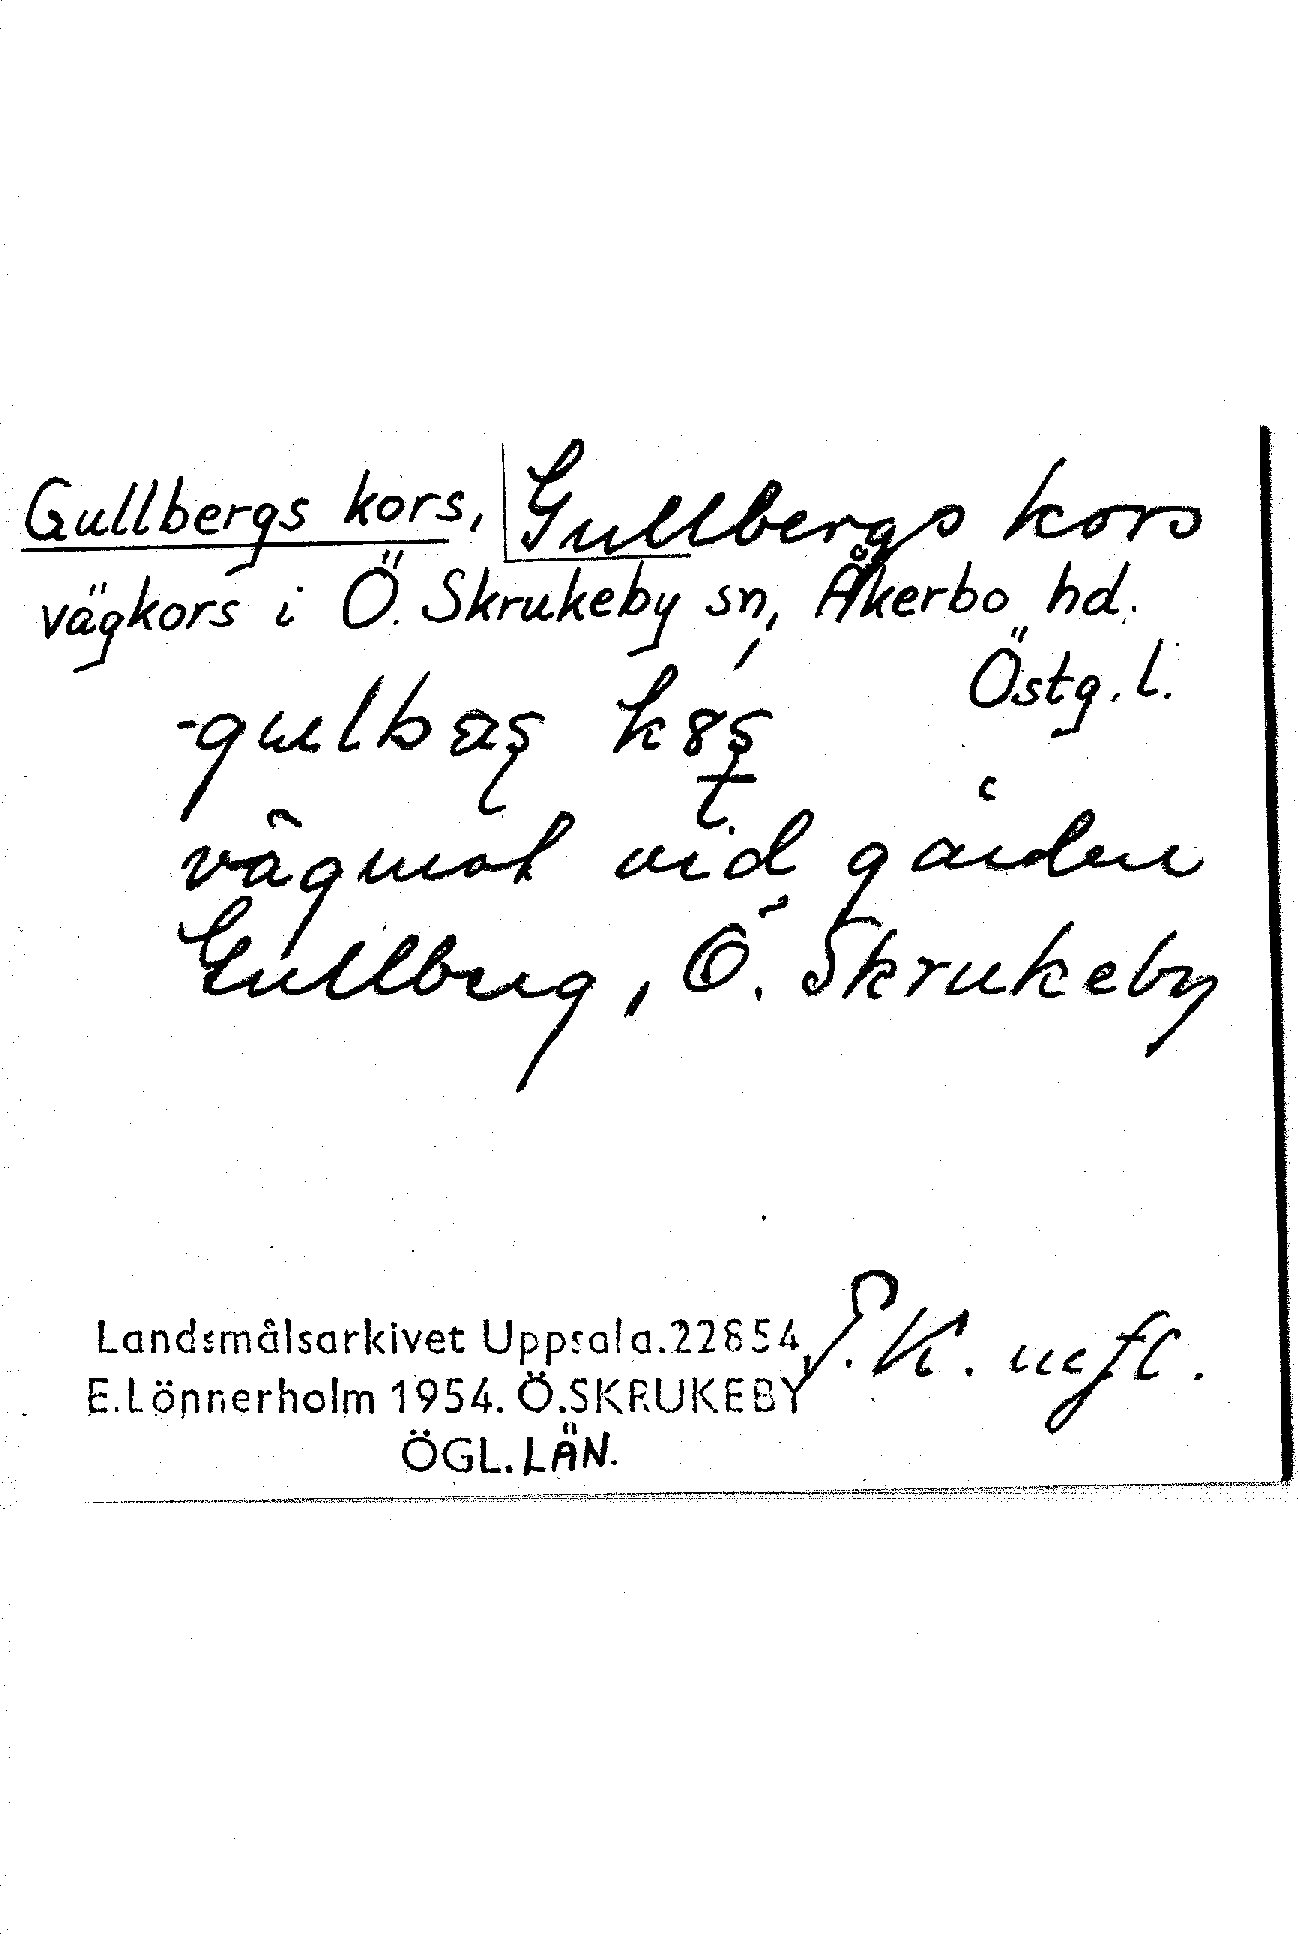 Gullbergs kors, Gullbergs kors
vägkors i Ö. Skrukeby sn, Åkerbo hd.
Östg. l.
vägmot vid gården
Gullberg, Ö. Skrukeby
Landsmålsarkivet Uppsala. 22854
E. Lönnerholm 1954. Ö. SKRUKEBY
ÖGL. LÄN.
E.K. m.fl.